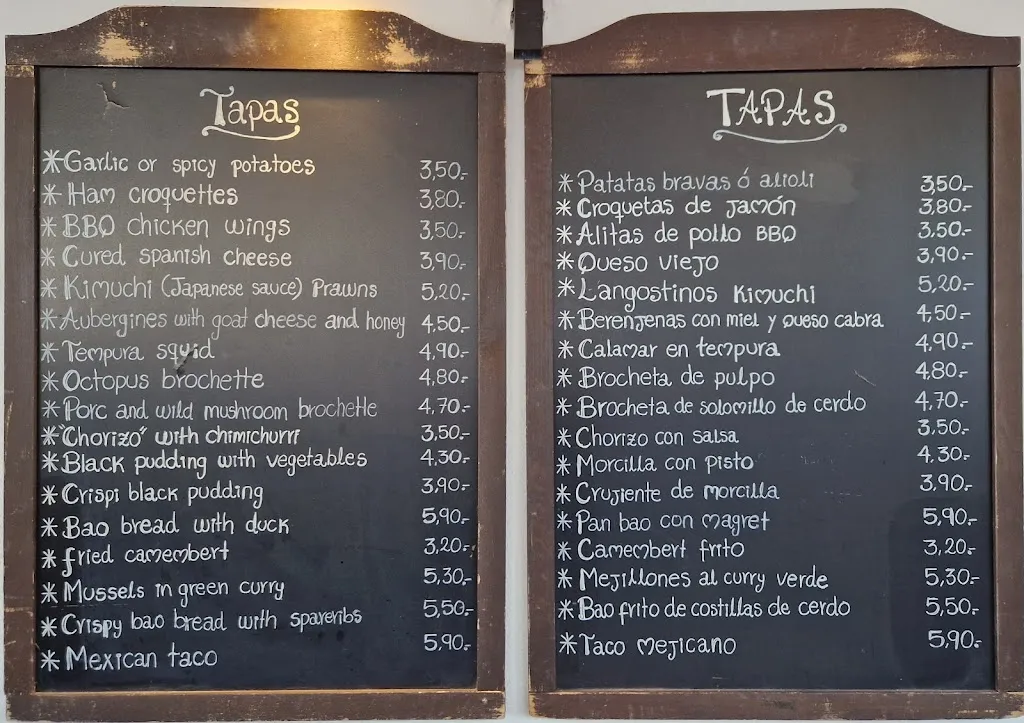 Tapas
*Garlic or spicy potatoes 3,50.-
*Ham croquettes 3,80.-
*BBQ chicken wings 3,50.-
*Cured spanish cheese 3,90.-
*Kimuchi (Japanese sauce) Prawns 5,20.-
*Aubergines with goat cheese and honey 4,50.-
*Tempura squid 4,90.-
*Octopus brochette 4,80.-
*Porc and wild mushroom brochette 4,70.-
*"Chorizo" with chimichurri 3,50.-
*Black pudding with vegetables 4,30.-
*Crispi black pudding 3,90.-
*Bao bread with duck 5,90.-
*fried camembert 3,20.-
*Mussels in green curry 5,30.-
*Crispy bao bread with spareribs 5,50.-
*Mexican taco 5,90.-
TAPAS
*Patatas bravas ó alioli 3,50.-
*Croquetas de jamón 3,80.-
*Alitas de pollo BBQ 3,50.-
*Queso viejo 3,90.-
*Langostinos Kimuchi 5,20.-
*Berenjenas con miel y queso cabra 4,50.-
*Calamar en tempura 4,90.-
*Brocheta de pulpo 4,80.-
*Brocheta de solomillo de cerdo 4,70.-
*Chorizo con salsa 3,50.-
*Morcilla con pisto 4,30.-
*Crujiente de morcilla 3,90.-
*Pan bao con magret 5,90.-
*Camembert frito 3,20.-
*Mejillones al curry verde 5,30.-
*Bao frito de costillas de cerdo 5,50.-
*Taco mejicano 5,90.-